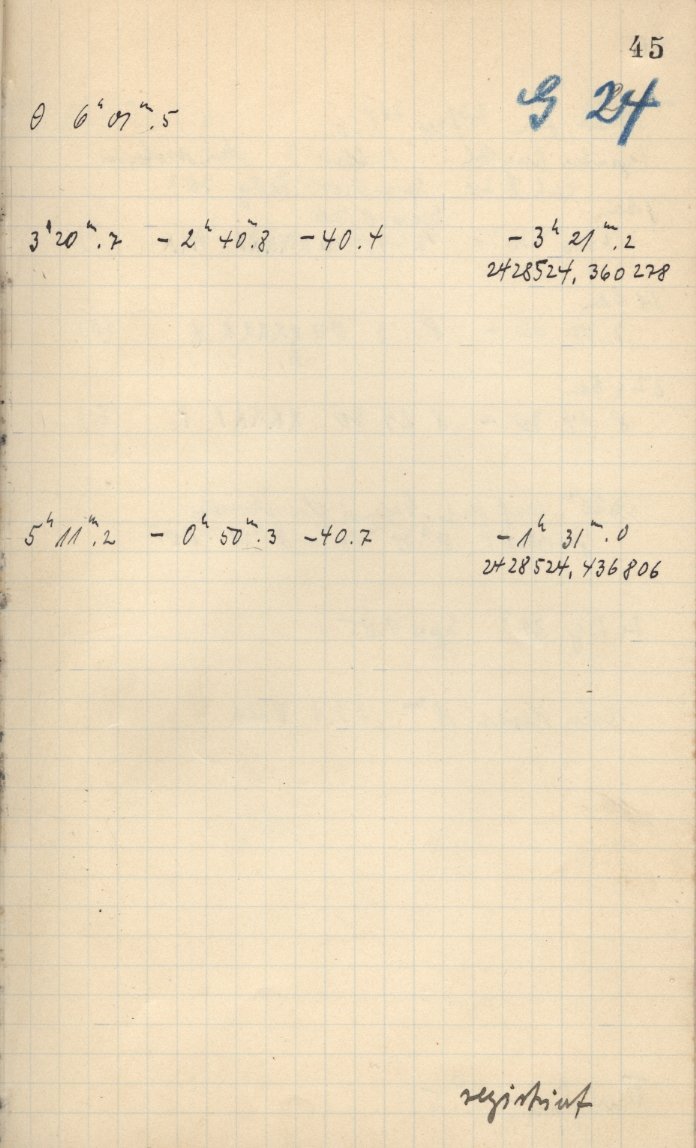 45
G 24
θ 6ʰ 01ᵐ.5
3ʰ20ᵐ.7 – 2ʰ40ᵐ.8 – 40.4 – 3ʰ 21ᵐ.2
2428524, 360278
5ʰ 11ᵐ.2 – 0ʰ 50ᵐ.3 – 40.7 – 1ʰ 31ᵐ.0
2428524, 436806
registriert